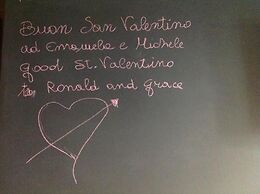 Buon San Valentino
ad Emanuela e Michele
good St. Valentino
to Ronald and grace